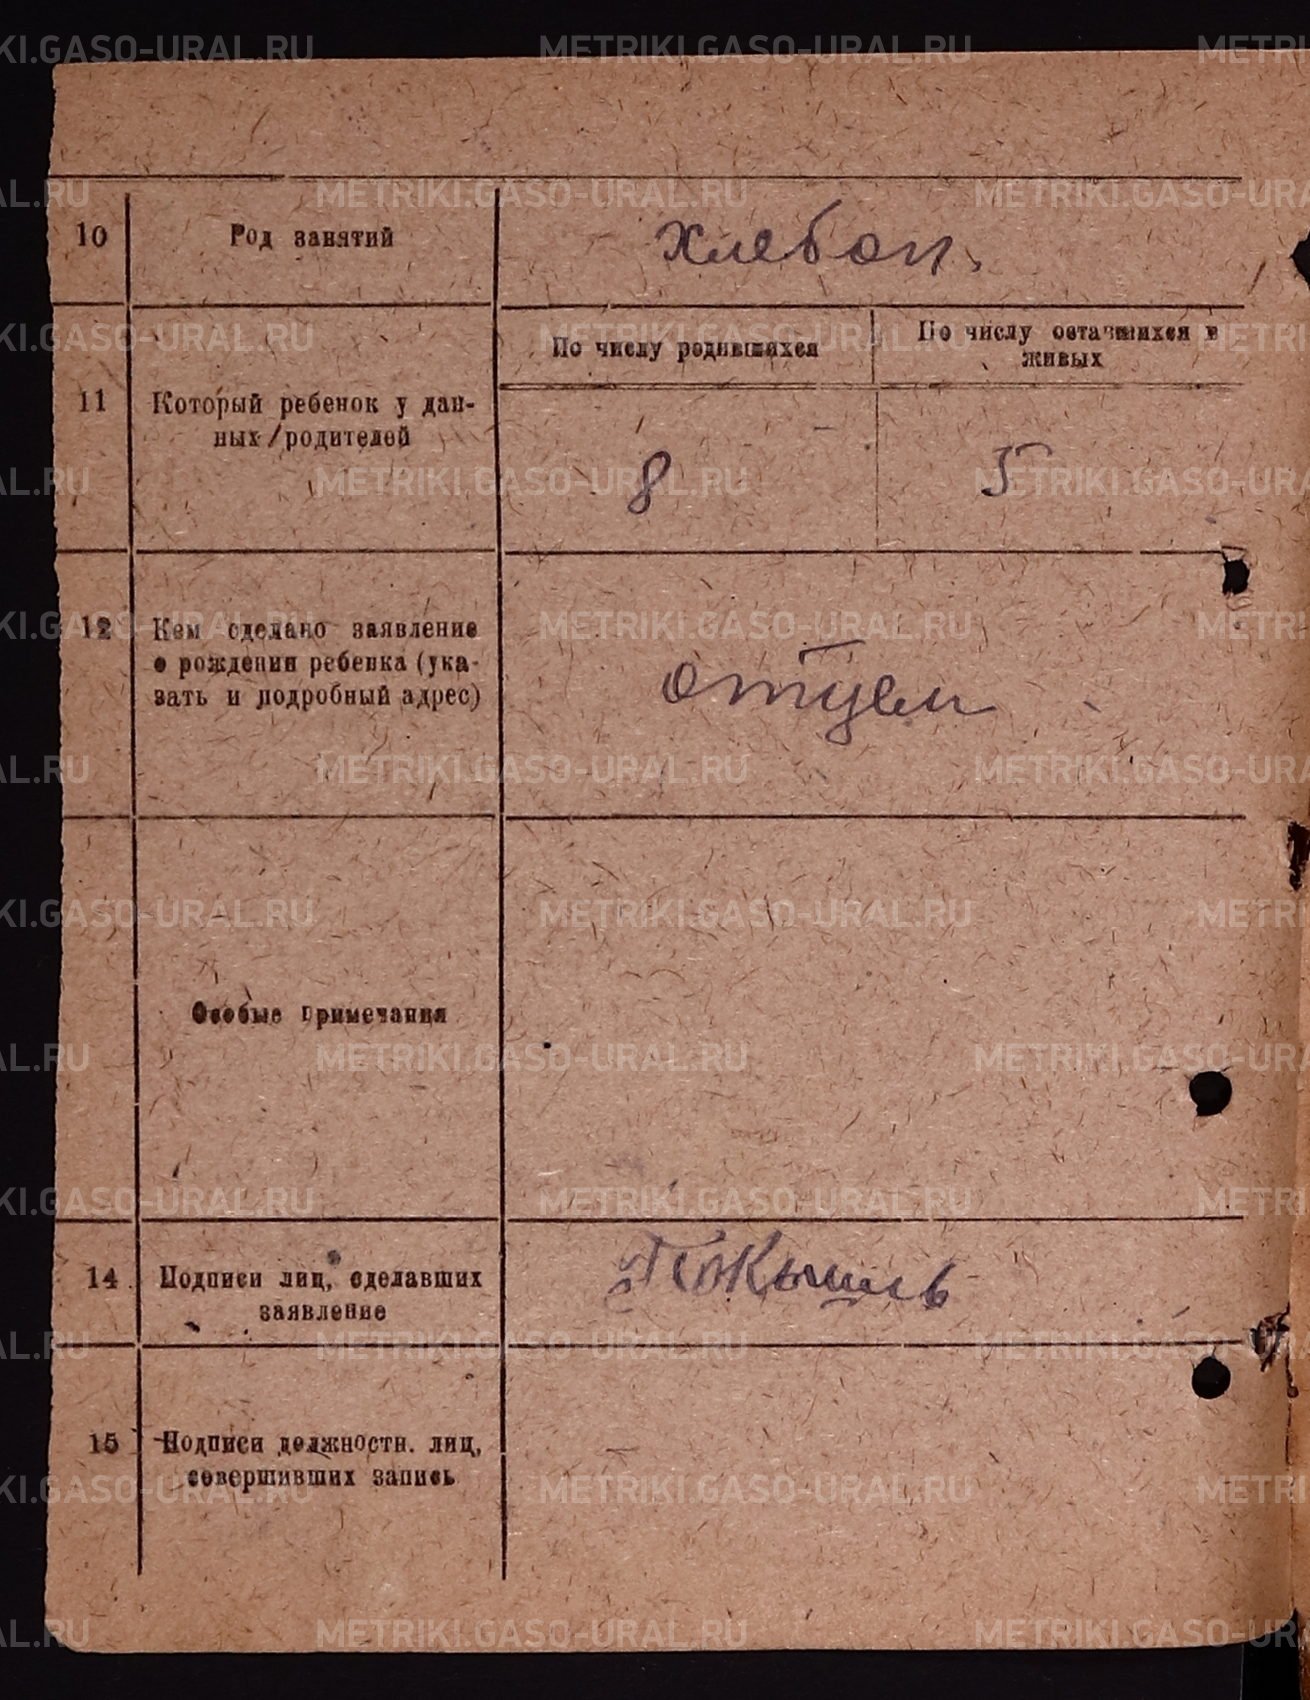 10 Род занятий хлебоп.
11 Который ребенок у дан-
ных родителей
По числу родившихся
По числу оставшихся в
живых
8 5
12 Кем сделано заявление
о рождении ребенка (ука-
зать и подробный адрес)
отцем
Особые примечания
14 Подписи лиц, сделавших
заявление
15 Подписи должностн. лиц,
совершивших запись
METRIKI.GASO-URAL.RU